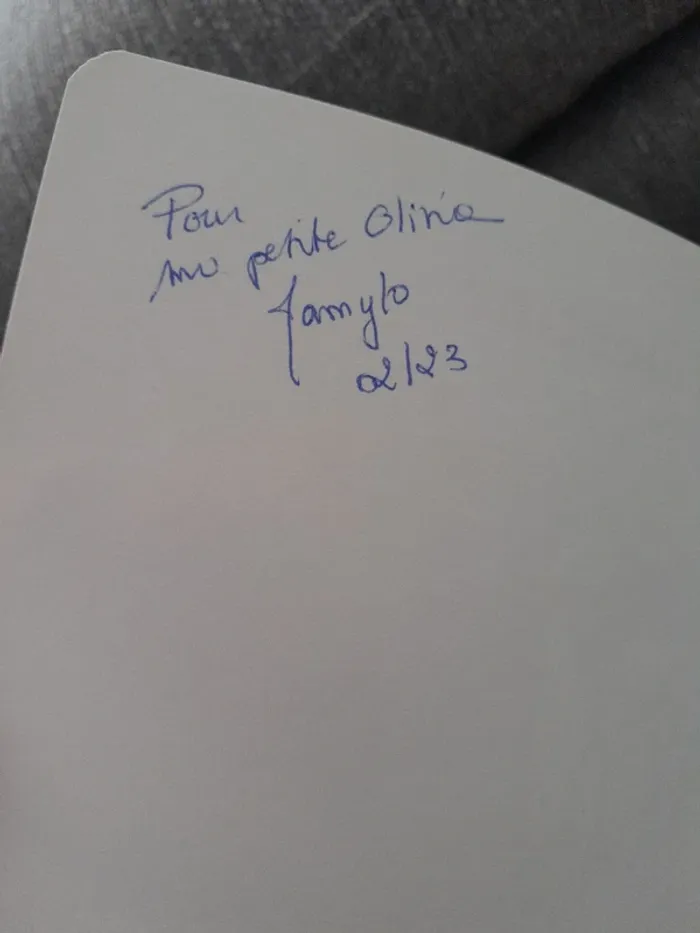 Pour
ma petite Olivia
Jamylo
02/23